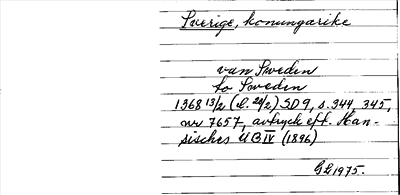 Sverige, konungarike
van Sweden
to Sweden
1368 13/2 (d. 20/2) SD 9, s. 344, 345,
nr 7657, avtryck eft. Han-
sisches UB IV (1896)
GL 1975.